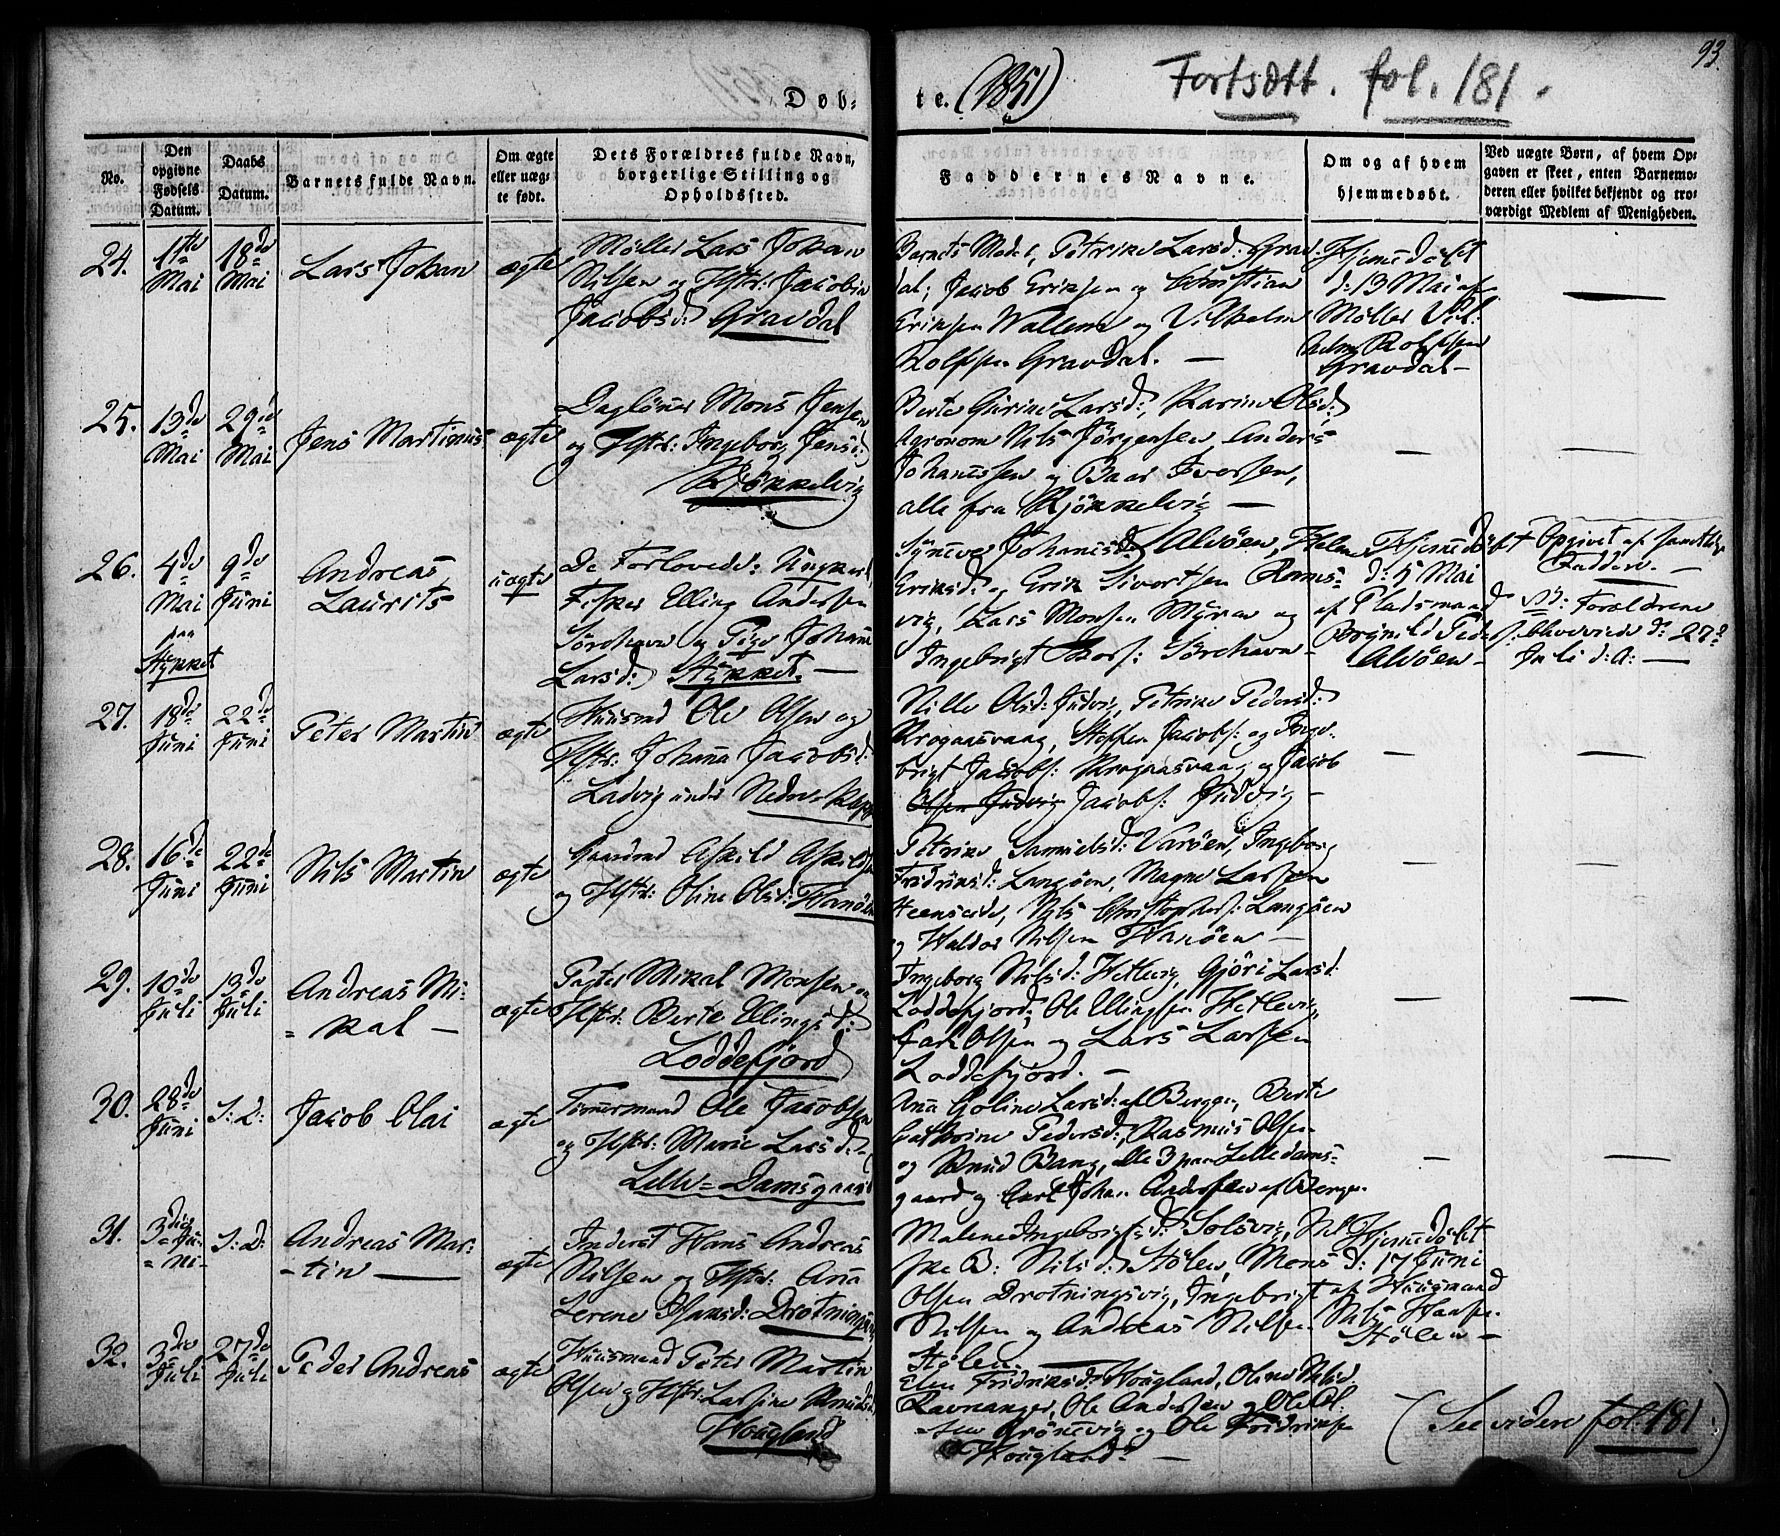 93.
Døb- te. (1851)
Fortsatt. fol. 181.
No.
Den opgivne Fødsels Datum.
Daabs Datum.
Barnets fulde Navn.
Om ægte eller uægte født.
Dets Forældres fulde Navn, borgerlige Stilling og Opholdssted.
Faddernes Navne.
Om og af hvem hjemmedøbt.
Ved uægte Børn, af hvem Opgaven er skeet, enten Barnemoderen eller hvilket bekjendt og troværdigt Medlem af Menigheden.
24.
11te Mai
18de Mai
Lars Johan
ægte
Møller Lars Johan
Nilsen og Hstr: Jacobine
Jacobsd: Gravdal
Barnets Moder, Petrine Larsd: Grav-
dal, Jacob Eriksen og Christian
Eriksen Wallem og Vilhelm
Rolfsen Gravdal. —
Hjemedøbt
d: 13 Mai af
Møller Vil-
helm Rolfsen
Gravdal —
—
25.
13de Mai
29de Mai
Jens Martinus
ægte
Daglønner Mons Jensen
og Hstr: Ingeborg Jensd:
Kjøkkelvig
Berte Gurine Larsd:, Karine Olsd:
Agronom Nils Jørgensen, Anders
Johannssen og Baar Iversen,
alle fra Kjøkkelvig —
—
—
26.
4de Mai
paa Stykket
9de Juni
Andreas
Laurits
uægte
De Forlovede: Ungkarl
Fisker Elling Andersen
Sørehavn og Pige Johanne
Larsd: Stykket. —
Synneve Johanisd: Alvøen, Helene
Eriksd: og Erik Sivertsen Rams-
vig, Lars Monsen Myren og
Ingebrigt Lars: Sørehavn —
Hjemedøbt
d: 5 Mai
af Pladsmand
Brynild Peders:
Alvøen —
Opgivet af samtlige
Faddere. —
Nd: Forældrene
blev viede d: 27de
Juli d: A: —
27.
18de Juni
22de Juni
Peter Martin
ægte
Huusmd Ole Olsen og
Hstr: Johanna Jacobsd:
Ladvig under Nedre-
Nille Olsd: Judvig, Petrine Pedersd:
Krogaasvaag, Steffen Jacobs: og Inge-
brigt Jacobs: Krogaasvaag, og Jacob
Olsen Judvig Jacobs: Judvig —
—
—
28.
16de Juni
22de Juni
Nils Martin
ægte
Gaardmd Askild Askilds:
og Hstr: Oline Olsd: Hanøen
Petrine Samuelsd: Varøen, Ingeborg
Fridriksd: Langøen, Magne Larssen
Steensede, Nils Christophers: Langøen
og Haldor Nilsen Hanøen —
—
—
29.
10de Juli
13de Juli
Andreas Mi-
-kal —
ægte
Pagter Mikal Monsen og
Hstr: Berte Ellingsd:
Loddefjord
Ingeborg Nilsd: Hetlevig, Gjøri Larsd:
Loddefjord, Ole Ellingsen Hetlevig,
Carl Olsen og Lars Larssen
Loddefjord. —
—
—
30.
28de Juni
S: D:
Jacob Olai
ægte
Tømermand Ole Jacobsen
og Hstr: Marie Larsd:
Lille-Damsgaard
Ana Goline Larsd: af Bergen, Berte
Cathrine Pedersd:, Rasmus Olsen
og Knud Bang, alle 3 paa Lille dams-
gaard og Carl Johan Andersen af Bergen.
—
—
31.
3die Ju-
-ni-
S: D:
Andreas Mar-
-tin —
ægte
Inderst Hans Andreas
Nilsen og Hstr: Ana
Serene Hansd: Drotningsvig
Malene Ingebrigtsd: Solsvig,
B: Nilsd: Stølen, Mons
Olsen Drotningsvig, Ingebrigt
Nilsen og Andreas Nilsen
Stølen. —
Hjemedøbt
d: 17 Juni
af Huusmand
Nils Hansen
Stølen —
32.
3die Juli
27de Juli
Peder Andreas
ægte
Huusmand Peter Martin
Olsen og Hstr: Larsine Knudsd:
Hougland
Elen Fridriksd: Hougland, Oline Nilsd:
Ravnanger, Ole Andersen og Ole Ol-
-sen Grønevig og Ole Fridriks:
Hougland. —
(See videre fol. 181.)